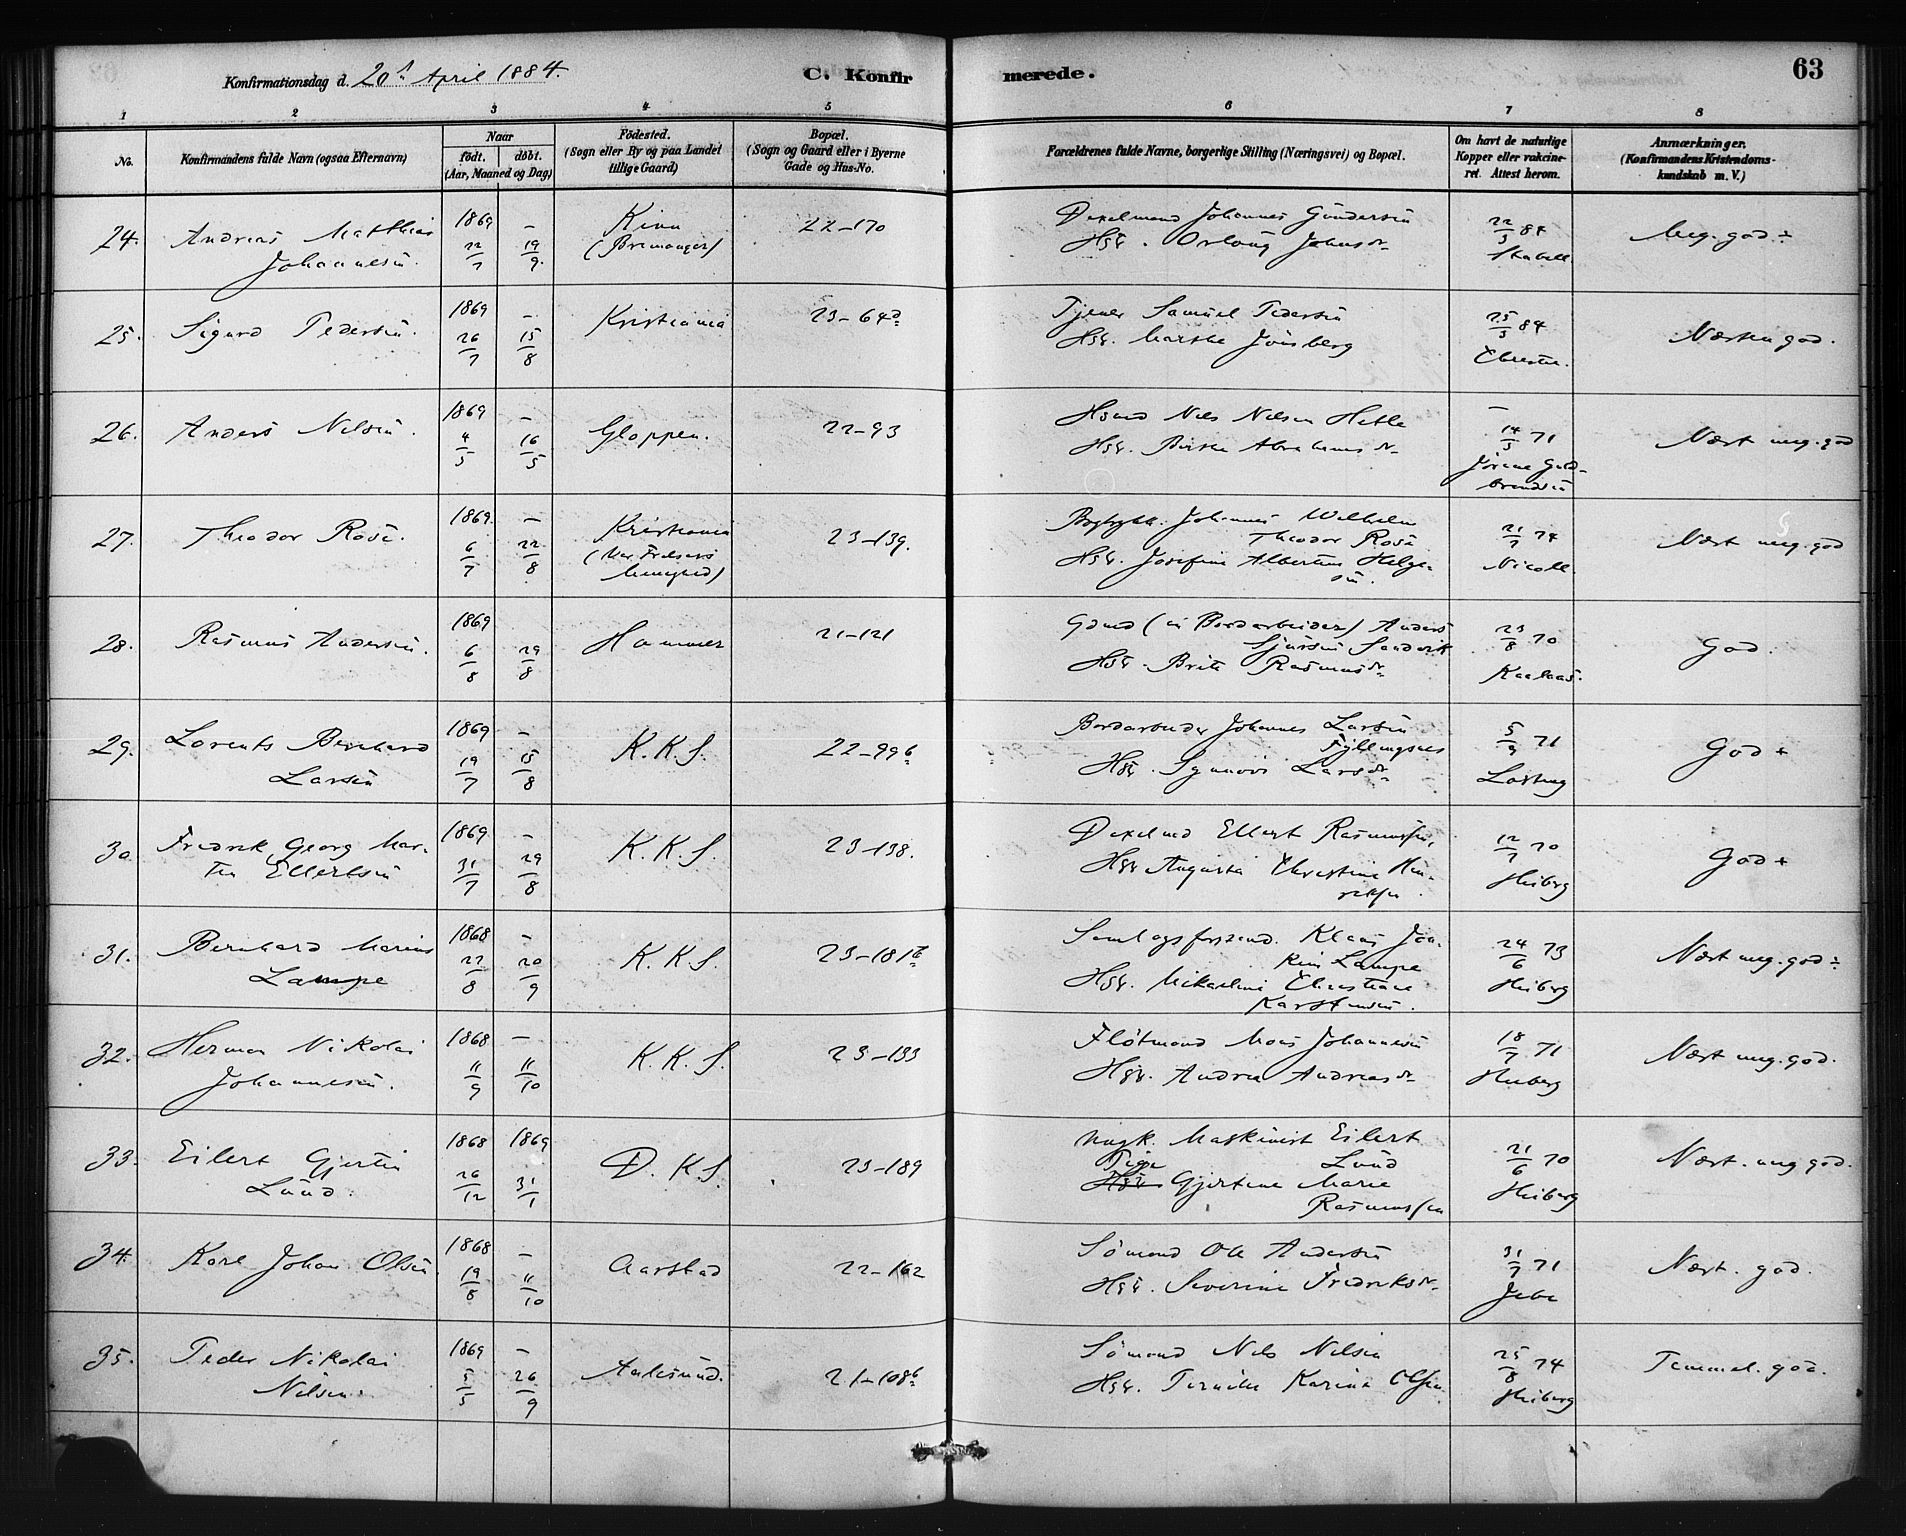 Konfirmationsdag d. 20de April 1884.
C. Konfirmerede.
63
1 2 3 4 5 6 7 8
No.
Konfirmandens fulde Navn (ogsaa Efternavn)
Naar
født. døbt.
(Aar, Maaned og Dag)
Födested.
(Sogn eller By og paa Landet
tillige Gaard)
Bopæl.
(Sogn og Gaard eller i Byerne
Gade og Hus-No.
Forældrenes fulde Navne, borgerlige Stilling (Næringsvei) og Bopæl.
Om havt de naturlige
Kopper eller vakcine-
ret. Attest herom.
Anmærkninger.
(Konfirmandens Kristendoms-
kundskab m. V.)
24. Andreas Matthias Johannesen. 1869 22/7 – 19/9 Kinn (Bremanger) 22–170
Johannes Gundersen
Hst. Johnsdr
22/3 84
Meg. god ÷
25. Sigurd Pedersen. 1869 26/7 – 15/8 Kristiania 23–64d
Tjener Samuel Pedersen
Hst. Marthe
25/3 84
Næsten god.
26. Anders Nilsen. 1869 4/5 – 16/5 Gloppen. 22–93
Hsmd Nils Nilsen Hetle
Hst. Birthe Abrahamsdr
– 14/5 71
Næst meg. god
27. Theodor Rose. 1869. 6/7 – 22/8 Kristiania (Vor Frelsers Menighed) 23–139.
Johannes Wilhelm
Theodor Rose
Hst. Josefine Albertine Helge-
sen.
21/7 74
Nicoll.
Næst meg. god
28. Rasmus Andersen. 1869 6/8 – 29/8 Hammer 21–121
Gdmd (nu Bordarbeider) Anders
Sjursen Sandvik
Hst. Brite Rasmusdr
23/8 70
Kaalaas.
God.
29. Lorents Bernhard Larsen 1869 19/7 – 15/8 K. K. S. 22–99b
Bordarbeider Johannes Larsen
Fyllingsnes
Hst. Synneve Larsdr
5/9 71
God +
30 Fredrik Georg Mar-
tin Ellertsen 1869 31/7 – 29/8 K. K. S. 23–138.
Ellert Rasmussen,
Hst Augusta Christine Hen-
riksen.
12/7 70
Heiberg
God +
31. Bernhard Marius Lampe 1868 22/8 – 20/9 K. K. S. 23–181b
Samlagsforstand. Klaus Joa-
kim Lampe
Hst. Mikaeline Christiane
Karstensen.
24/6 73
Heiberg
Næst meg. god ÷
32. Herman Nikolai Johannesen. 1868 11/9 – 11/10 K. K. S. 23–133
Fløtmand Mons Johannesen
Hst. Andrea Andreasdr
18/7 71
Heiberg
Næst meg. god.
33. Eilert Gjertin Lund. 1868 26/12 1869 31/1 D. K S. 23–189
Ungk. Maskinist Eilert
Lund
Pige
Hst Gjertine Marie
Rasmussen
21/6 70
Heiberg
Næst. meg god.
34. Karl Johan Olsen. 1868 19/8 – 11/10 Aarstad 22–162
Sömand Ole Andersen
Hst. Severine Fredriksdr
31/7 71
Jebe
Næst. god.
35. Peder Nikolai Nilsen. 1869 5/5 – 26/9 Aalesund. 21–108b
Sömand Nils Nilsen
Hst. Pernille Karine Olsen.
25/8 74
Heiberg
Temmel. god.